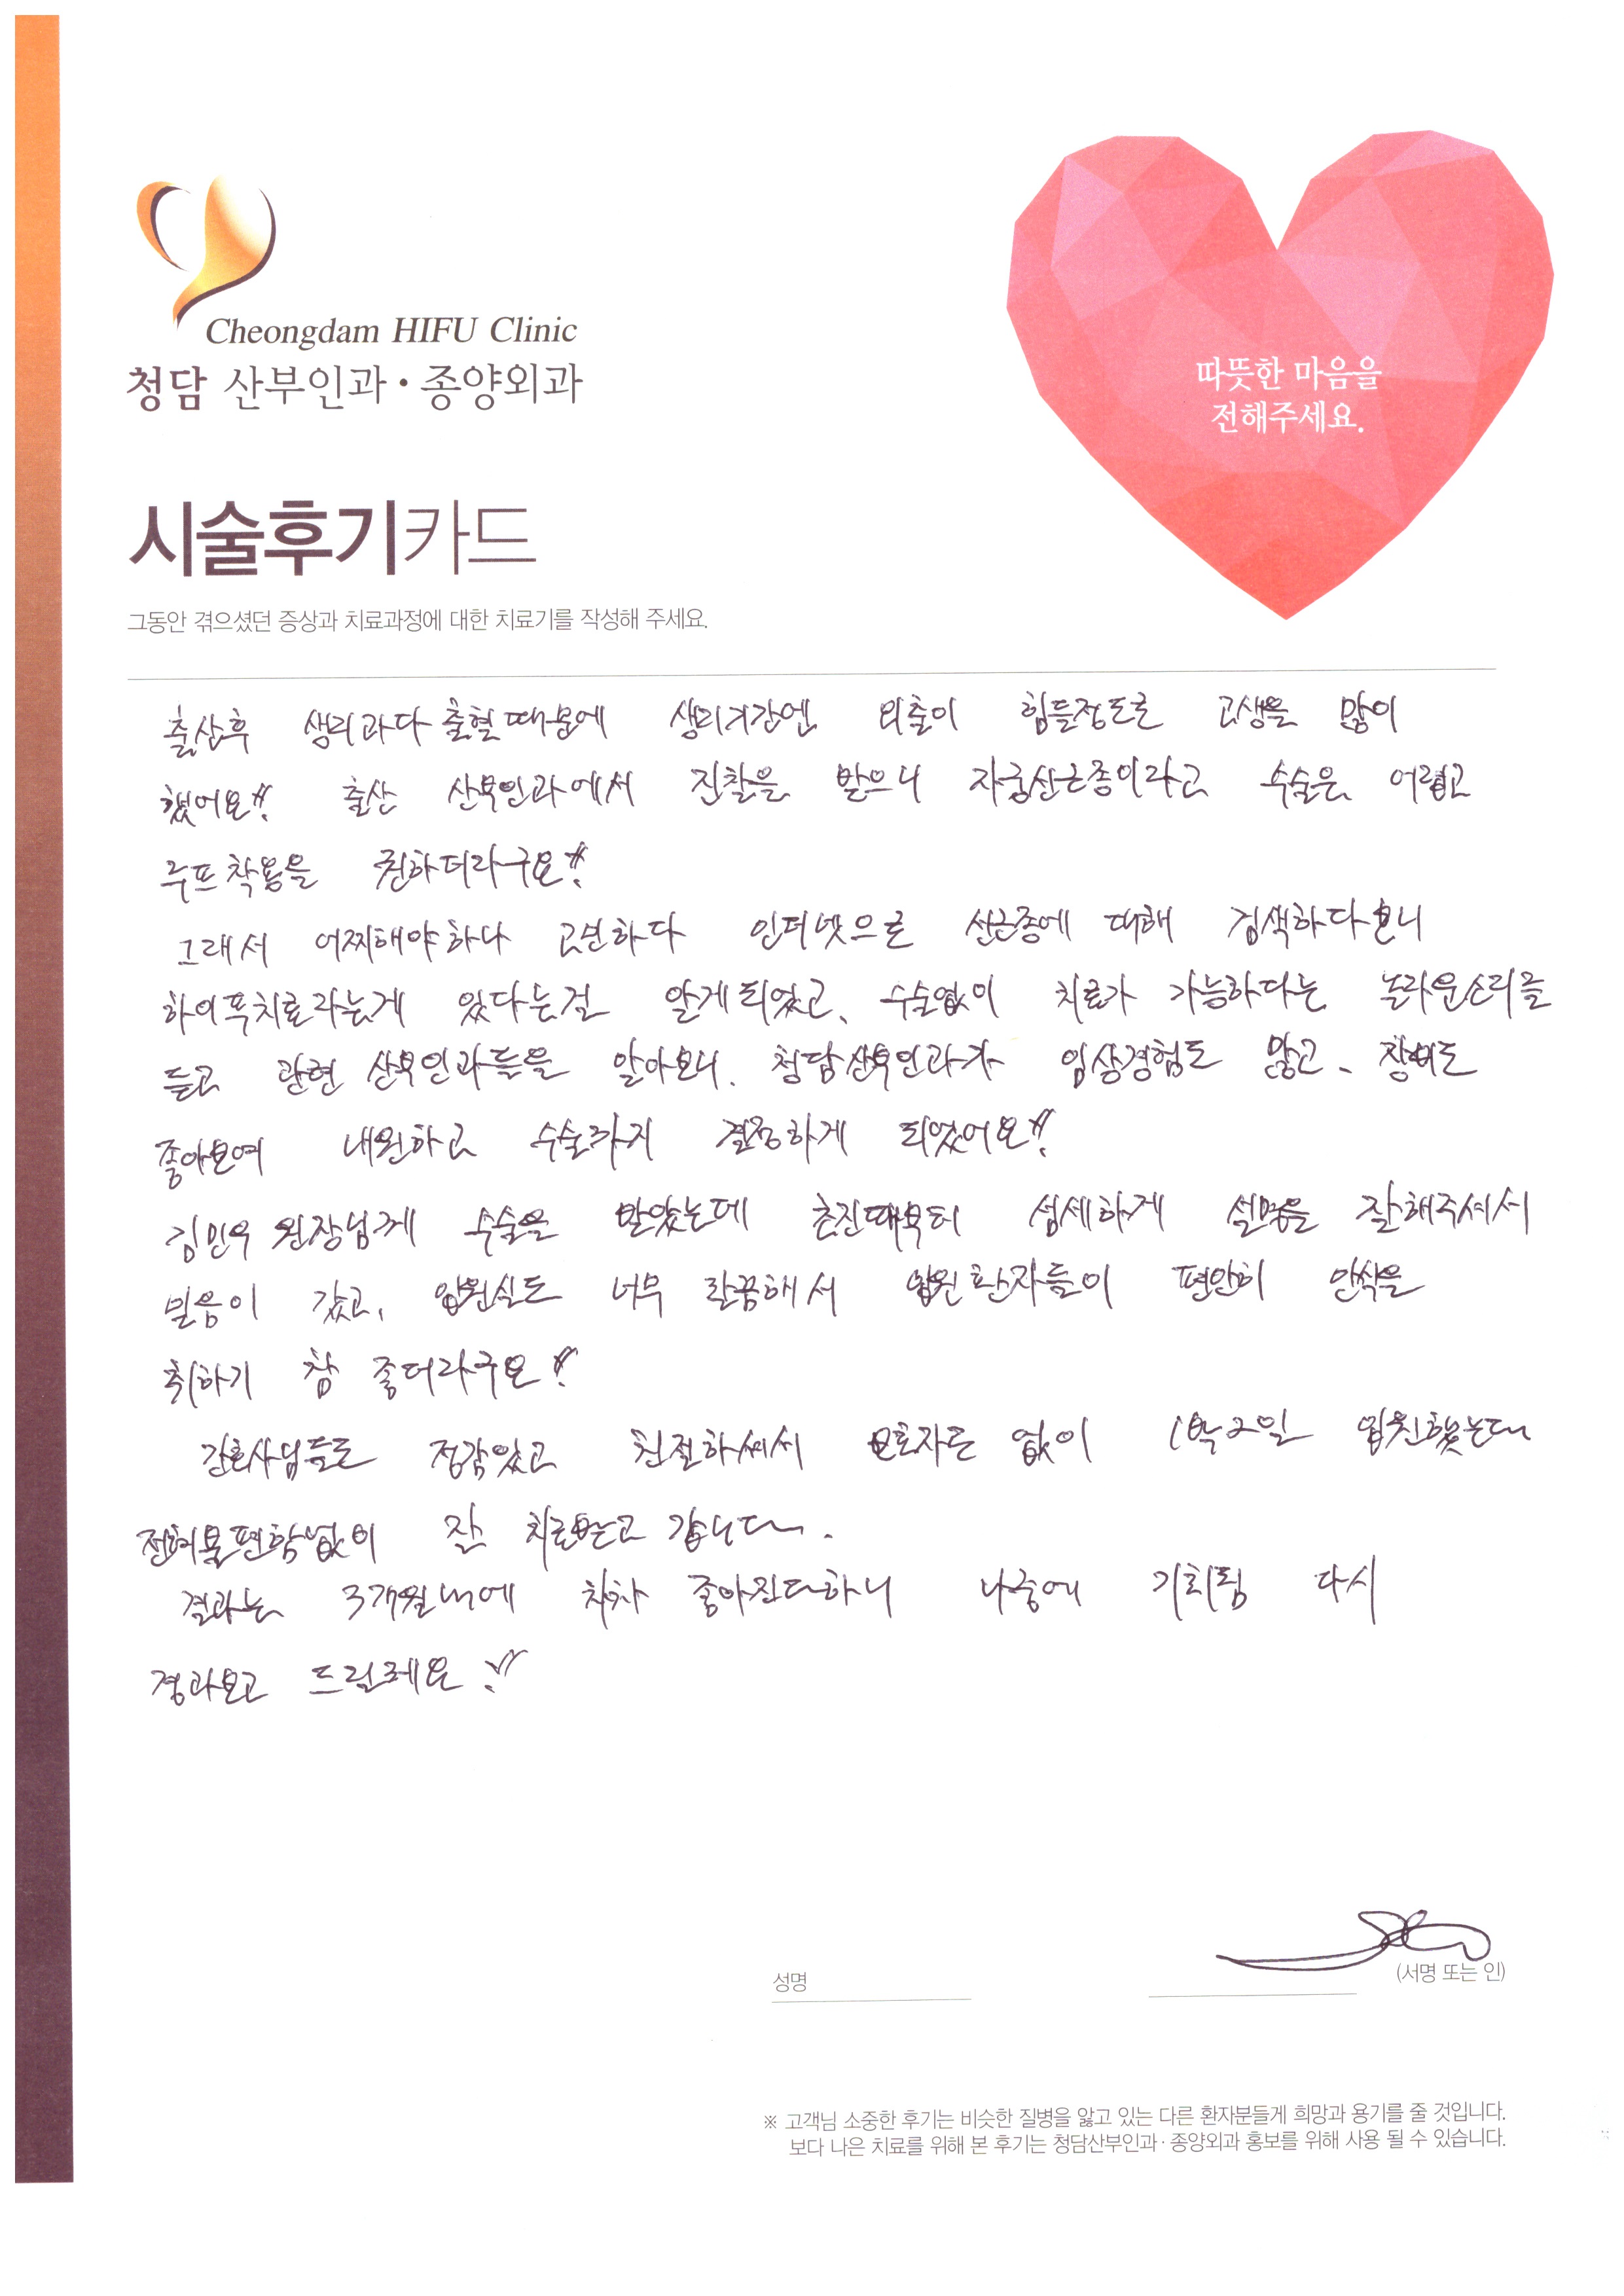 Cheongdam HIFU Clinic
청담 산부인과·종양외과
따뜻한 마음을
전해주세요.
시술후기카드
그동안 겪으셨던 증상과 치료과정에 대한 치료기를 작성해 주세요.
출산후 생리과다출혈때문에 생리기간엔 외출이 힘들정도로 고생을 많이
했어요!! 출산 산부인과에서 진찰을 받으니 자궁선근종이라고 수술은 어렵고
루프착용을 권하더라구요!!
그래서 어찌해야하나 고민하다 인터넷으로 선근종에 대해 검색하다보니
하이푸치료라는게 있다는걸 알게되었고, 수술없이 치료가 가능하다는 놀라운소리를
듣고 관련 산부인과들을 알아보니, 청담산부인과가 임상경험도 많고, 장비도
좋아보여 내원하고 수술까지 결정하게 되었어요!!
김민우 원장님께 수술을 받았는데 촌진때부터 섬세하게 설명을 잘해주셔서
믿음이 갔고, 입원실도 너무 깔끔해서 입원환자들이 편안히 안식을
취하기 참 좋더라구요!!
간호사님들도 정감있고 친절하셔서 보호자도 없이 1박2일 입원했는데
전혀불편함없이 잘 치료받고 갑니다.
결과는 3개월내에 차차 좋아진다하니 나중에 기회됨 다시
경과보고 드릴께요!!
성명
(서명 또는 인)
※ 고객님 소중한 후기는 비슷한 질병을 앓고 있는 다른 환자분들게 희망과 용기를 줄 것입니다.
보다 나은 치료를 위해 본 후기는 청담산부인과·종양외과 홍보를 위해 사용 될 수 있습니다.